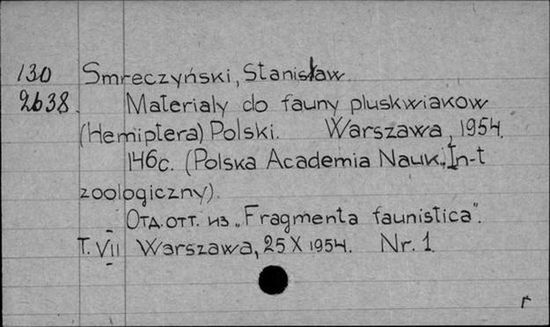 130 Smreczyński, Stanisław
2638. Materialy do fauny pluskwiakow
(Hemiptera) Polski. Warszawa, 1954.
146c. (Polska Academia Nauk. In-t
zoologiczny).
Отд. отт. из „Fragmenta faunistica".
T. VII Warszawa, 25 X 1954. Nr. 1
r